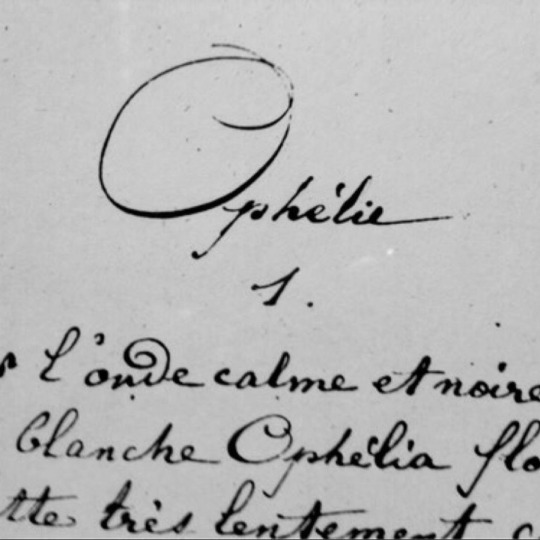 Ophélie
1.
l'onde calme et noire
blanche Ophélia flo
tte très lentement, c